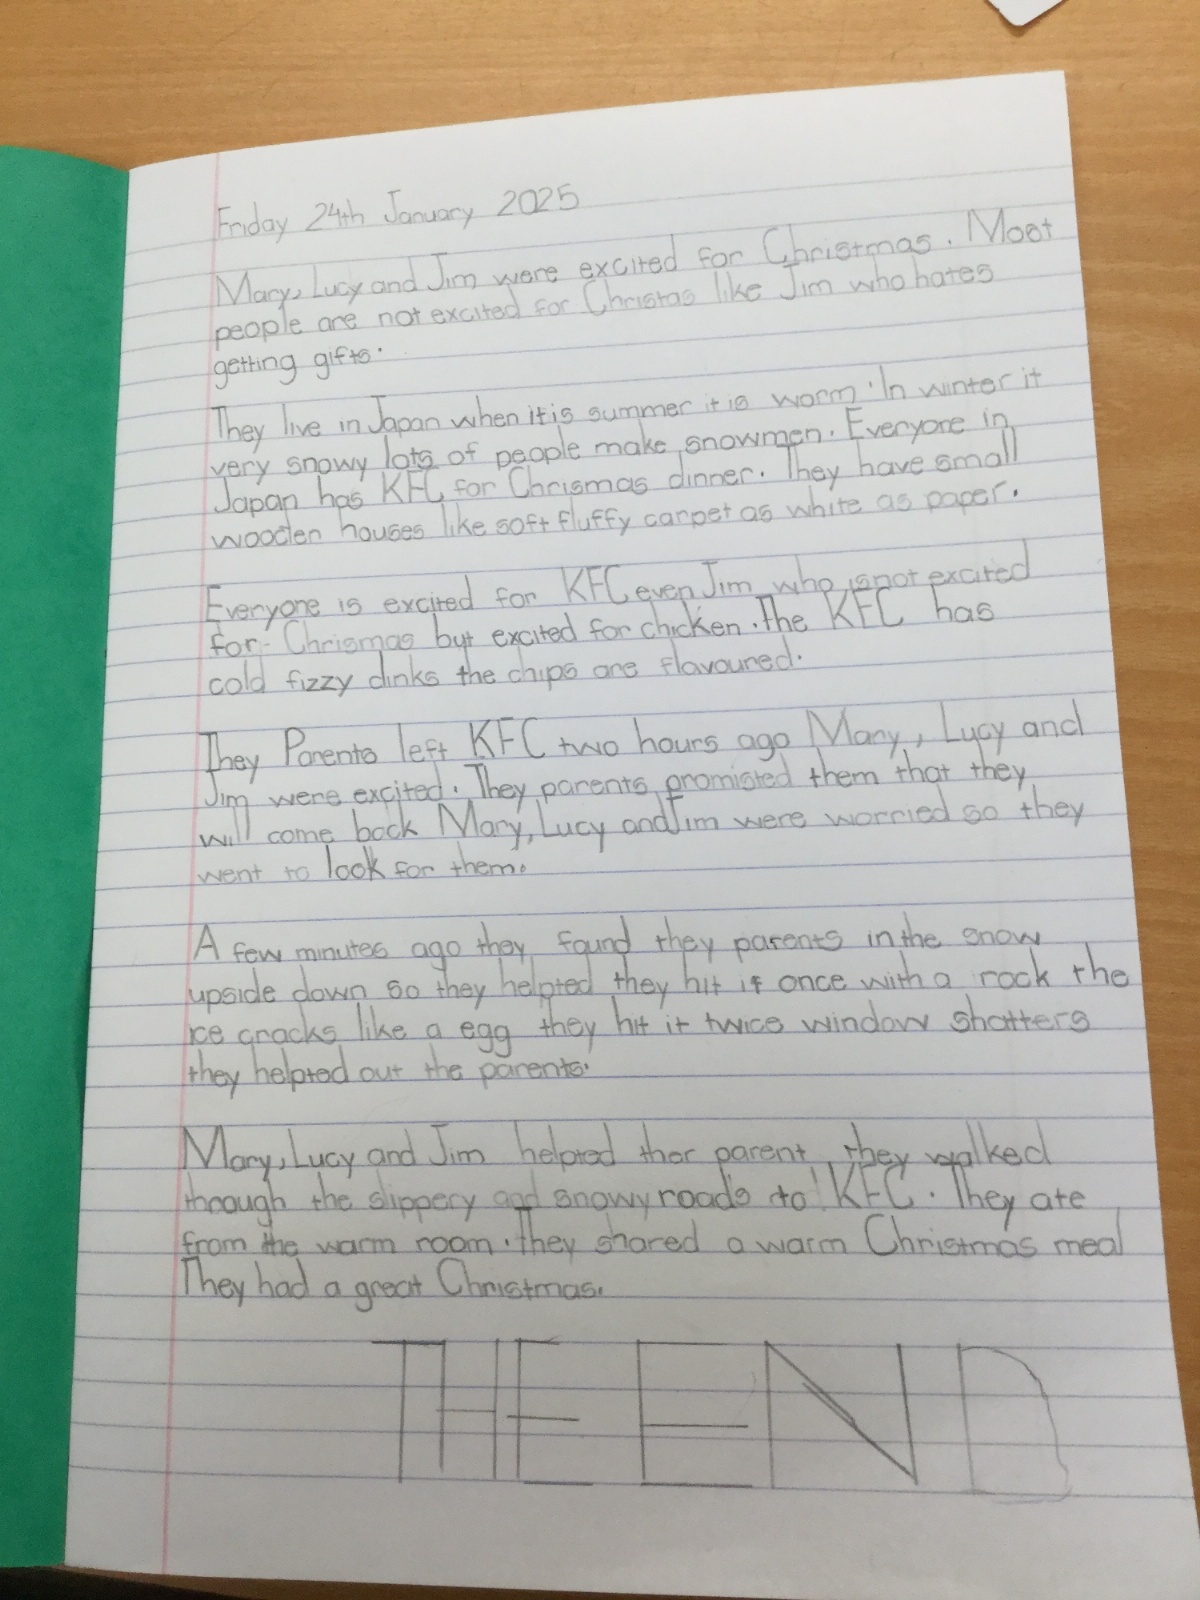 Friday 24th January 2025
Mary, Lucy and Jim were excited for Christmas. Most
people are not excited for Christas like Jim who hates
getting gifts.
They live in Japan when it is summer it is warm. In winter it
very snowy lots of people make snowmen. Everyone in
Japan has KFC for Chrismas dinner. They have small
wooden houses like soft fluffy carpet as white as paper.
Everyone is excited for KFC even Jim who is not excited
for Chrismas but excited for chicken. The KFC has
cold fizzy dinks the chips are flavoured.
They Parents left KFC two hours ago Mary, Lucy and
Jim were excited. They parents promisted them that they
will come back Mary, Lucy and Jim were worried so they
went to look for them.
A few minutes ago they found they parents in the snow
upside down so they helpted they hit it once with a rock the
ice cracks like a egg they hit it twice window shatters
they helpted out the parents.
Mary, Lucy and Jim helpted ther parent they walked
through the slippery and snowy roads to KFC. They ate
from the warm room. They shared a warm Christmas meal
They had a great Christmas.
THE END